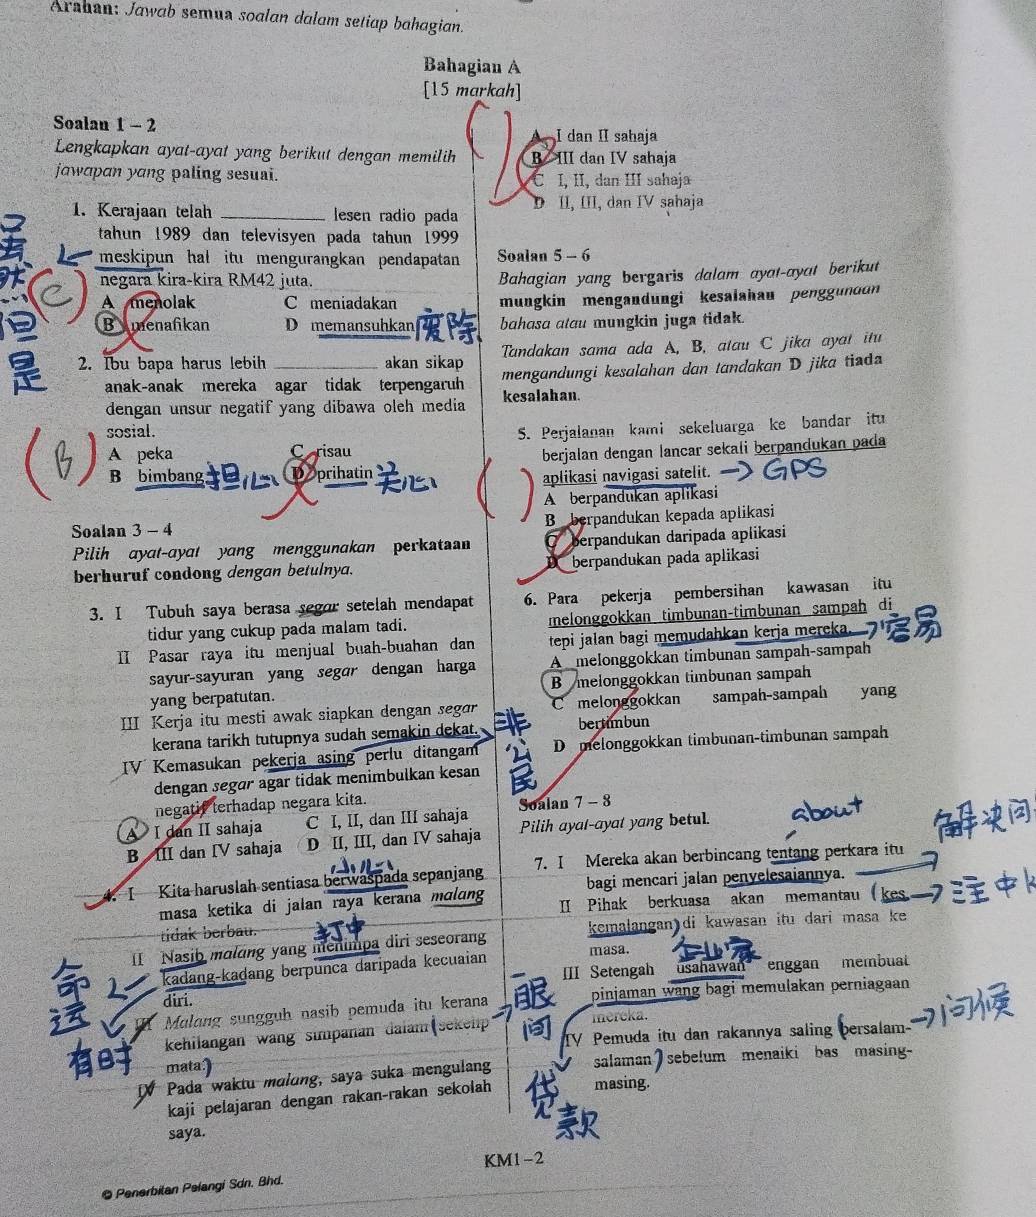 Arahan: Jawab semua soalan dalam setiap bahagian.
Bahagian A
[15 markah]
Soalan 1 – 2
Lengkapkan ayat-ayat yang berikut dengan memilih
jawapan yang paling sesuai.
1. Kerajaan telah __________ lesen radio pada
tahun 1989 dan televisyen pada tahun 1999
meskipun hal itu mengurangkan pendapatan
negara kira-kira RM42 juta.
虽然但是
(C)
A menolak C meniadakan
B menafikan D memansuhkan 废除
2. Ibu bapa harus lebih __________ akan sikap
anak-anak mereka agar tidak terpengaruh
dengan unsur negatif yang dibawa oleh media
sosial.
(B)
A peka C risau
B bimbang 担心 D prihatin 关心
Soalan 3 – 4
Pilih ayat-ayat yang menggunakan perkataan
berhuruf condong dengan betulnya.
3. I Tubuh saya berasa segar setelah mendapat
tidur yang cukup pada malam tadi.
II Pasar raya itu menjual buah-buahan dan
sayur-sayuran yang segar dengan harga
yang berpatutan.
III Kerja itu mesti awak siapkan dengan segar
kerana tarikh tutupnya sudah semakin dekat.
IV Kemasukan pekerja asing perlu ditangani
非公民
dengan segar agar tidak menimbulkan kesan
negatif terhadap negara kita.
A I dan II sahaja C I, II, dan III sahaja
B III dan IV sahaja D II, III, dan IV sahaja
小心
4. I Kita haruslah sentiasa berwaspada sepanjang
masa ketika di jalan raya kerana malang
tidak berbau.
打中
II Nasib malang yang menimpa diri seseorang
kadang-kadang berpunca daripada kecuaian
diri.
命运
有时
III Malang sungguh nasib pemuda itu kerana
kehilangan wang simpanan dalam (sekelip
mata.)
眼间
IV Pada waktu malang, saya suka mengulang
kaji pelajaran dengan rakan-rakan sekolah
saya.
( )
A I dan II sahaja
B III dan IV sahaja
C I, II, dan III sahaja
D II, III, dan IV sahaja
Soalan 5 – 6
Bahagian yang bergaris dalam ayat-ayat berikut
mungkin mengandungi kesalahan penggunaan
bahasa atau mungkin juga tidak.
Tandakan sama ada A, B, atau C jika ayat itu
mengandungi kesalahan dan tandakan D jika tiada
kesalahan.
5. Perjalanan kami sekeluarga ke bandar itu
berjalan dengan lancar sekali berpandukan pada
aplikasi navigasi satelit. → GPS
( )
A berpandukan aplikasi
B berpandukan kepada aplikasi
C berpandukan daripada aplikasi
D berpandukan pada aplikasi
6. Para pekerja pembersihan kawasan itu
melonggokkan timbunan-timbunan sampah di
tepi jalan bagi memudahkan kerja mereka. → 容易
A melonggokkan timbunan sampah-sampah
B melonggokkan timbunan sampah
C melonggokkan sampah-sampah yang
bertimbun
D melonggokkan timbunan-timbunan sampah
Soalan 7 – 8
Pilih ayat-ayat yang betul.
about
7. I Mereka akan berbincang tentang perkara itu
bagi mencari jalan penyelesaiannya.
解决问
II Pihak berkuasa akan memantau (kes
kemalangan) di kawasan itu dari masa ke
masa.
企业家
III Setengah usahawan enggan membuat
pinjaman wang bagi memulakan perniagaan
mereka.
IV Pemuda itu dan rakannya saling (bersalam-
salaman) sebelum menaiki bas masing-
masing.
→ 问候
贷款
KM1–2
© Penerbitan Pelangi Sdn. Bhd.